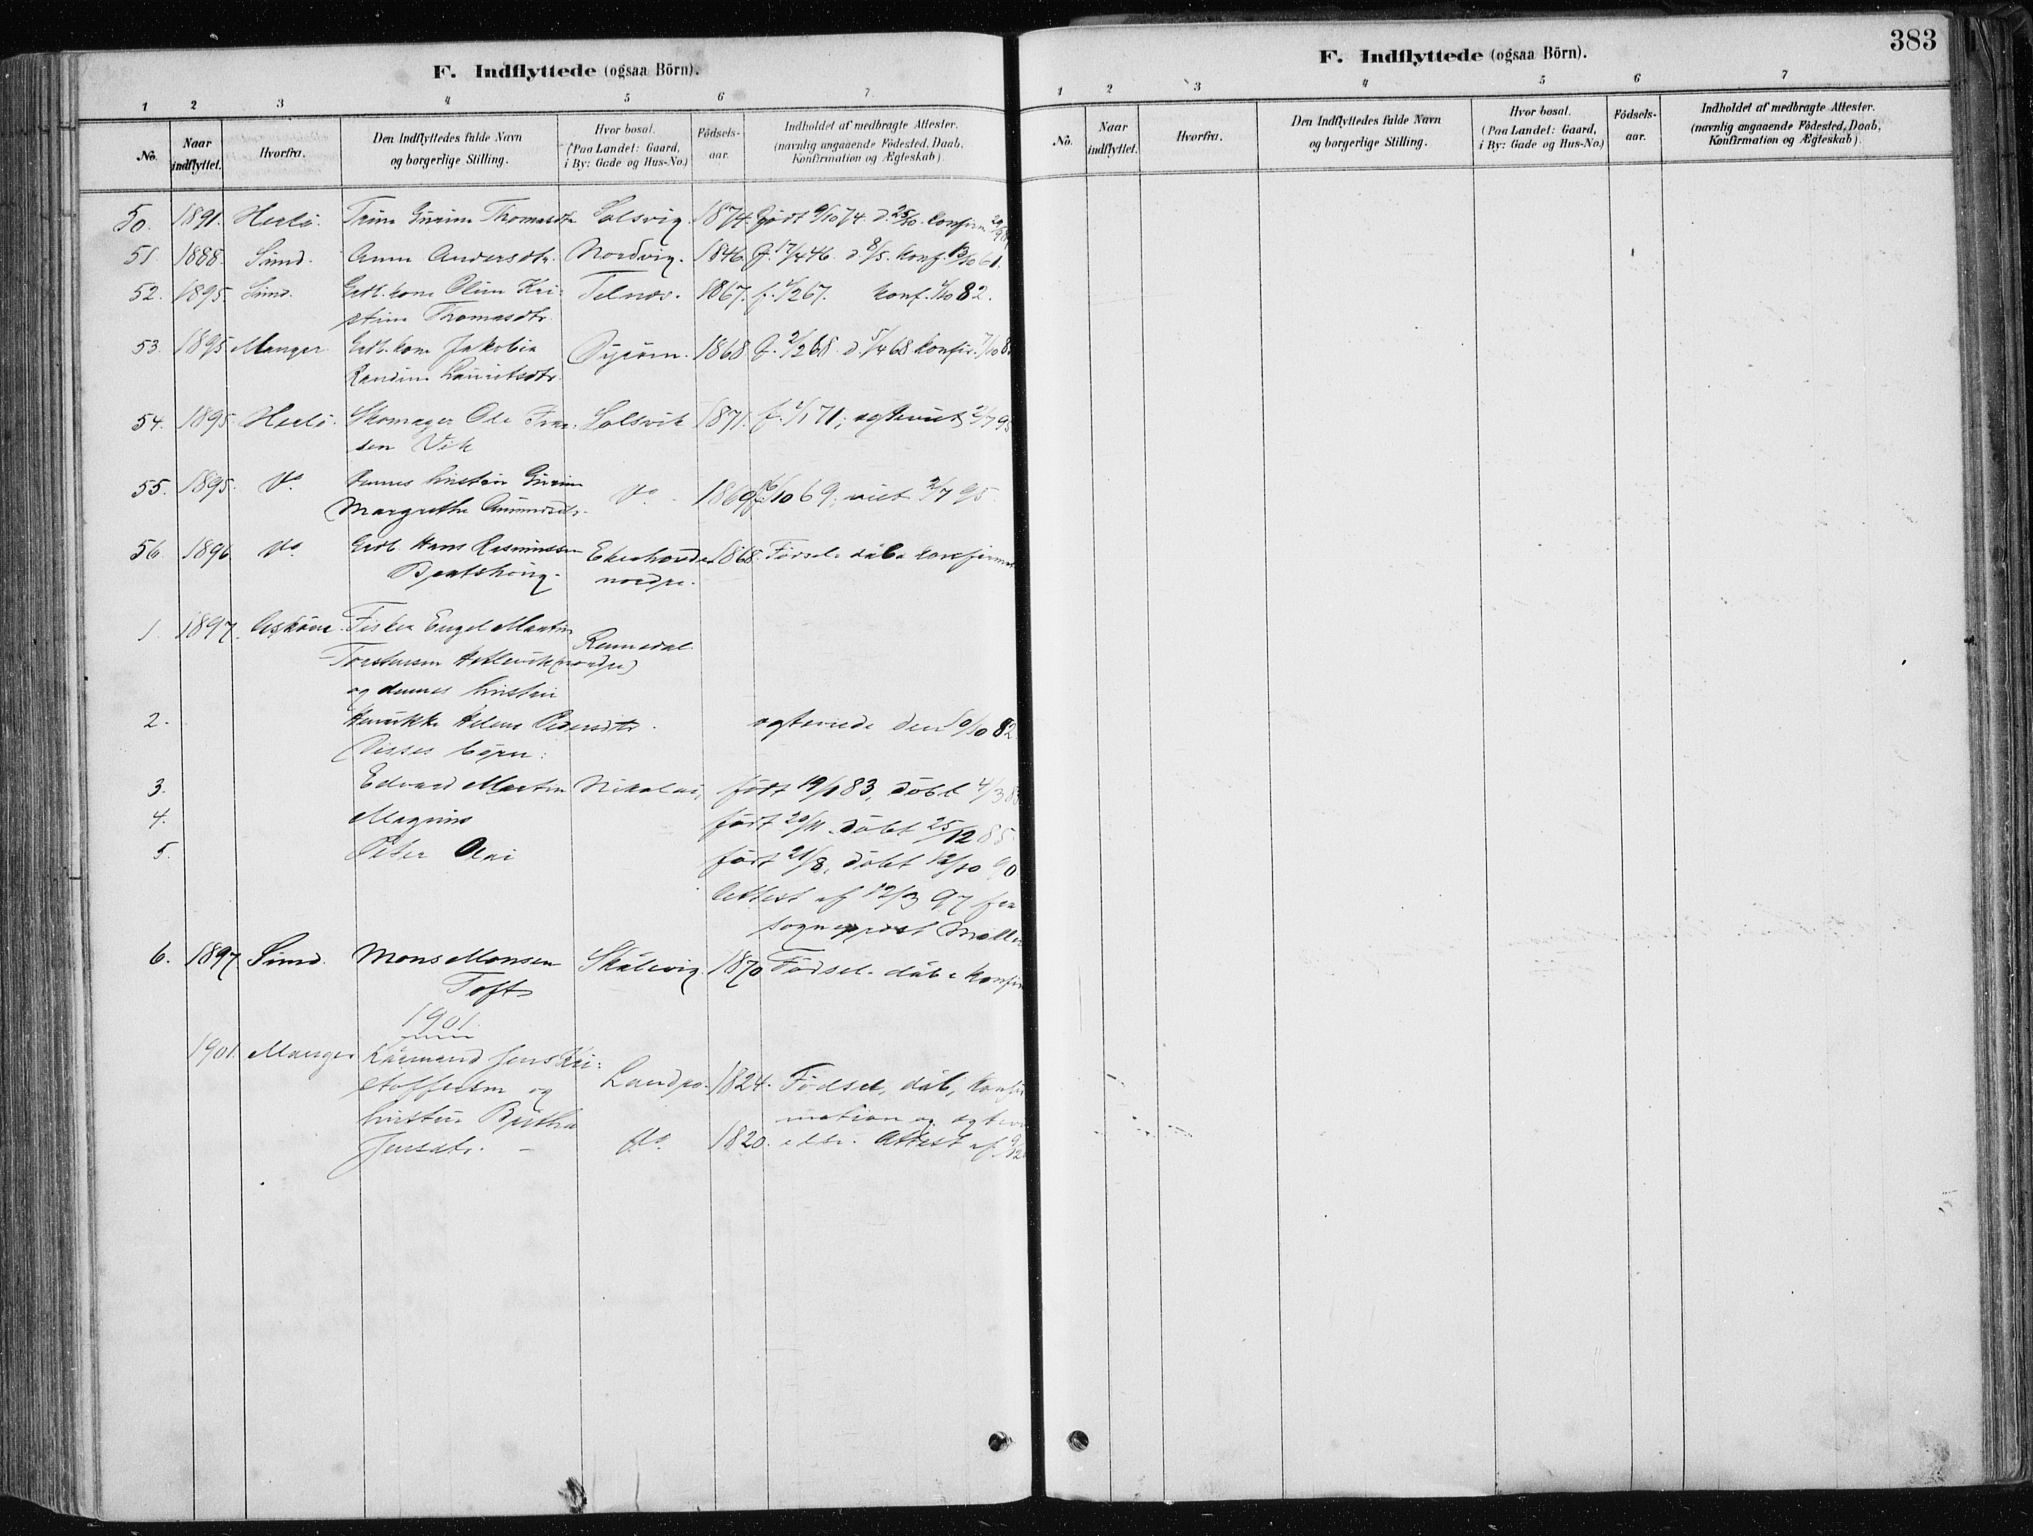 F. Indflyttede (ogsaa Börn).
1 2 3 4 5 6 7.
No. Naar indflyttet. Hvorfra. Den Indflyttedes fulde Navn og borgerlige Stilling. Hvor bosat. (Paa Landet: Gaard, i By: Gade og Hus-No.) Födsels-aar. Indholdet af medbragte Attester. (navnlig angaaende Födested, Daab, Konfirmation og Ægteskab)
50. 1891. Herlö. Thomasdtr Solsvig. 1874. Födt 9/10 74. d. 25/10. konfirm.
51. 1888. Sund. Anna Andersdtr. Nordvig. 1846. f. 17/4 46. d 8/5. konf.
52. 1895. Sund. Gdb. kone Olina Kri-
stine Thomasdtr. Telnæs. 1867. f. 1/2 67. konf. 1/10 82.
53. 1895 Manger. Gdb. kone Jakobia
Randine Lauritsdtr. 1868. f. 2/2 68. d 5/4 68 konfir. 7/10
54. 1895. Herlö. Skomager Ole
sen Vik Solsvik 1871. f. 1/1 71; egteviet 2/7 95
55. 1895. do. Dennes hustru
Margrethe do. 1869 6/10 69; viet 2/7 95.
56. 1896 do. Gdb. Hans Rasmussen Ekerhovde 1868. Födsel. dåb. konfirmat
nordre.
1. 1897. Askøen. Fisker Engel Martin
Torstensen Hetlevik (nordre)
og dennes hustru
2. Henrikke Helene Pedersdtr. egteviede den 10/10 82.
Disses børn:
3. Edvard Martin Nikolai, født 19/1 83, døbt 4/3 83
4. Magnus født 20/11. døbt 25/12 85
5. Peter Olai født 21/8, døbt 12/10 90
Attest af 12/3 97 fra
sogneprest
6. 1897 Sund. Mons Monsen Skålevig. 1870 Födsel. dåb. konfir
Toft
1901.
1901 Manger Kårmand Jens Kri-
stoffersen og Landro. 1824. Födsel, dåb, konfir
hustru Brita mation og egtevi
Jensdtr. - do. 1820. else. Attest af
383
F. Indflyttede (ogsaa Börn).
1 2 3 4 5 6 7
No. Naar indflyttet. Hvorfra. Den Indflyttedes fulde Navn og borgerlige Stilling. Hvor bosat. (Paa Landet: Gaard, i By: Gade og Hus-No.) Födsels-aar. Indholdet af medbragte Attester. (navnlig angaaende Födested, Daab, Konfirmation og Ægteskab)